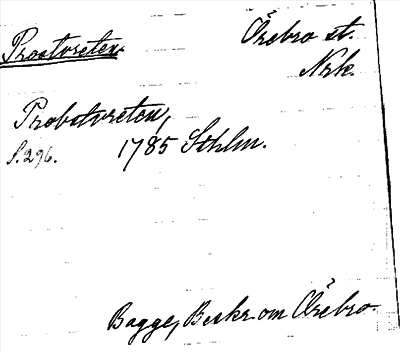 Prostvreten.
Örebro st.
Nrk.
Probstvreten,
S. 296.
1785 Sthlm.
Bagge, Beskr. om Örebro.